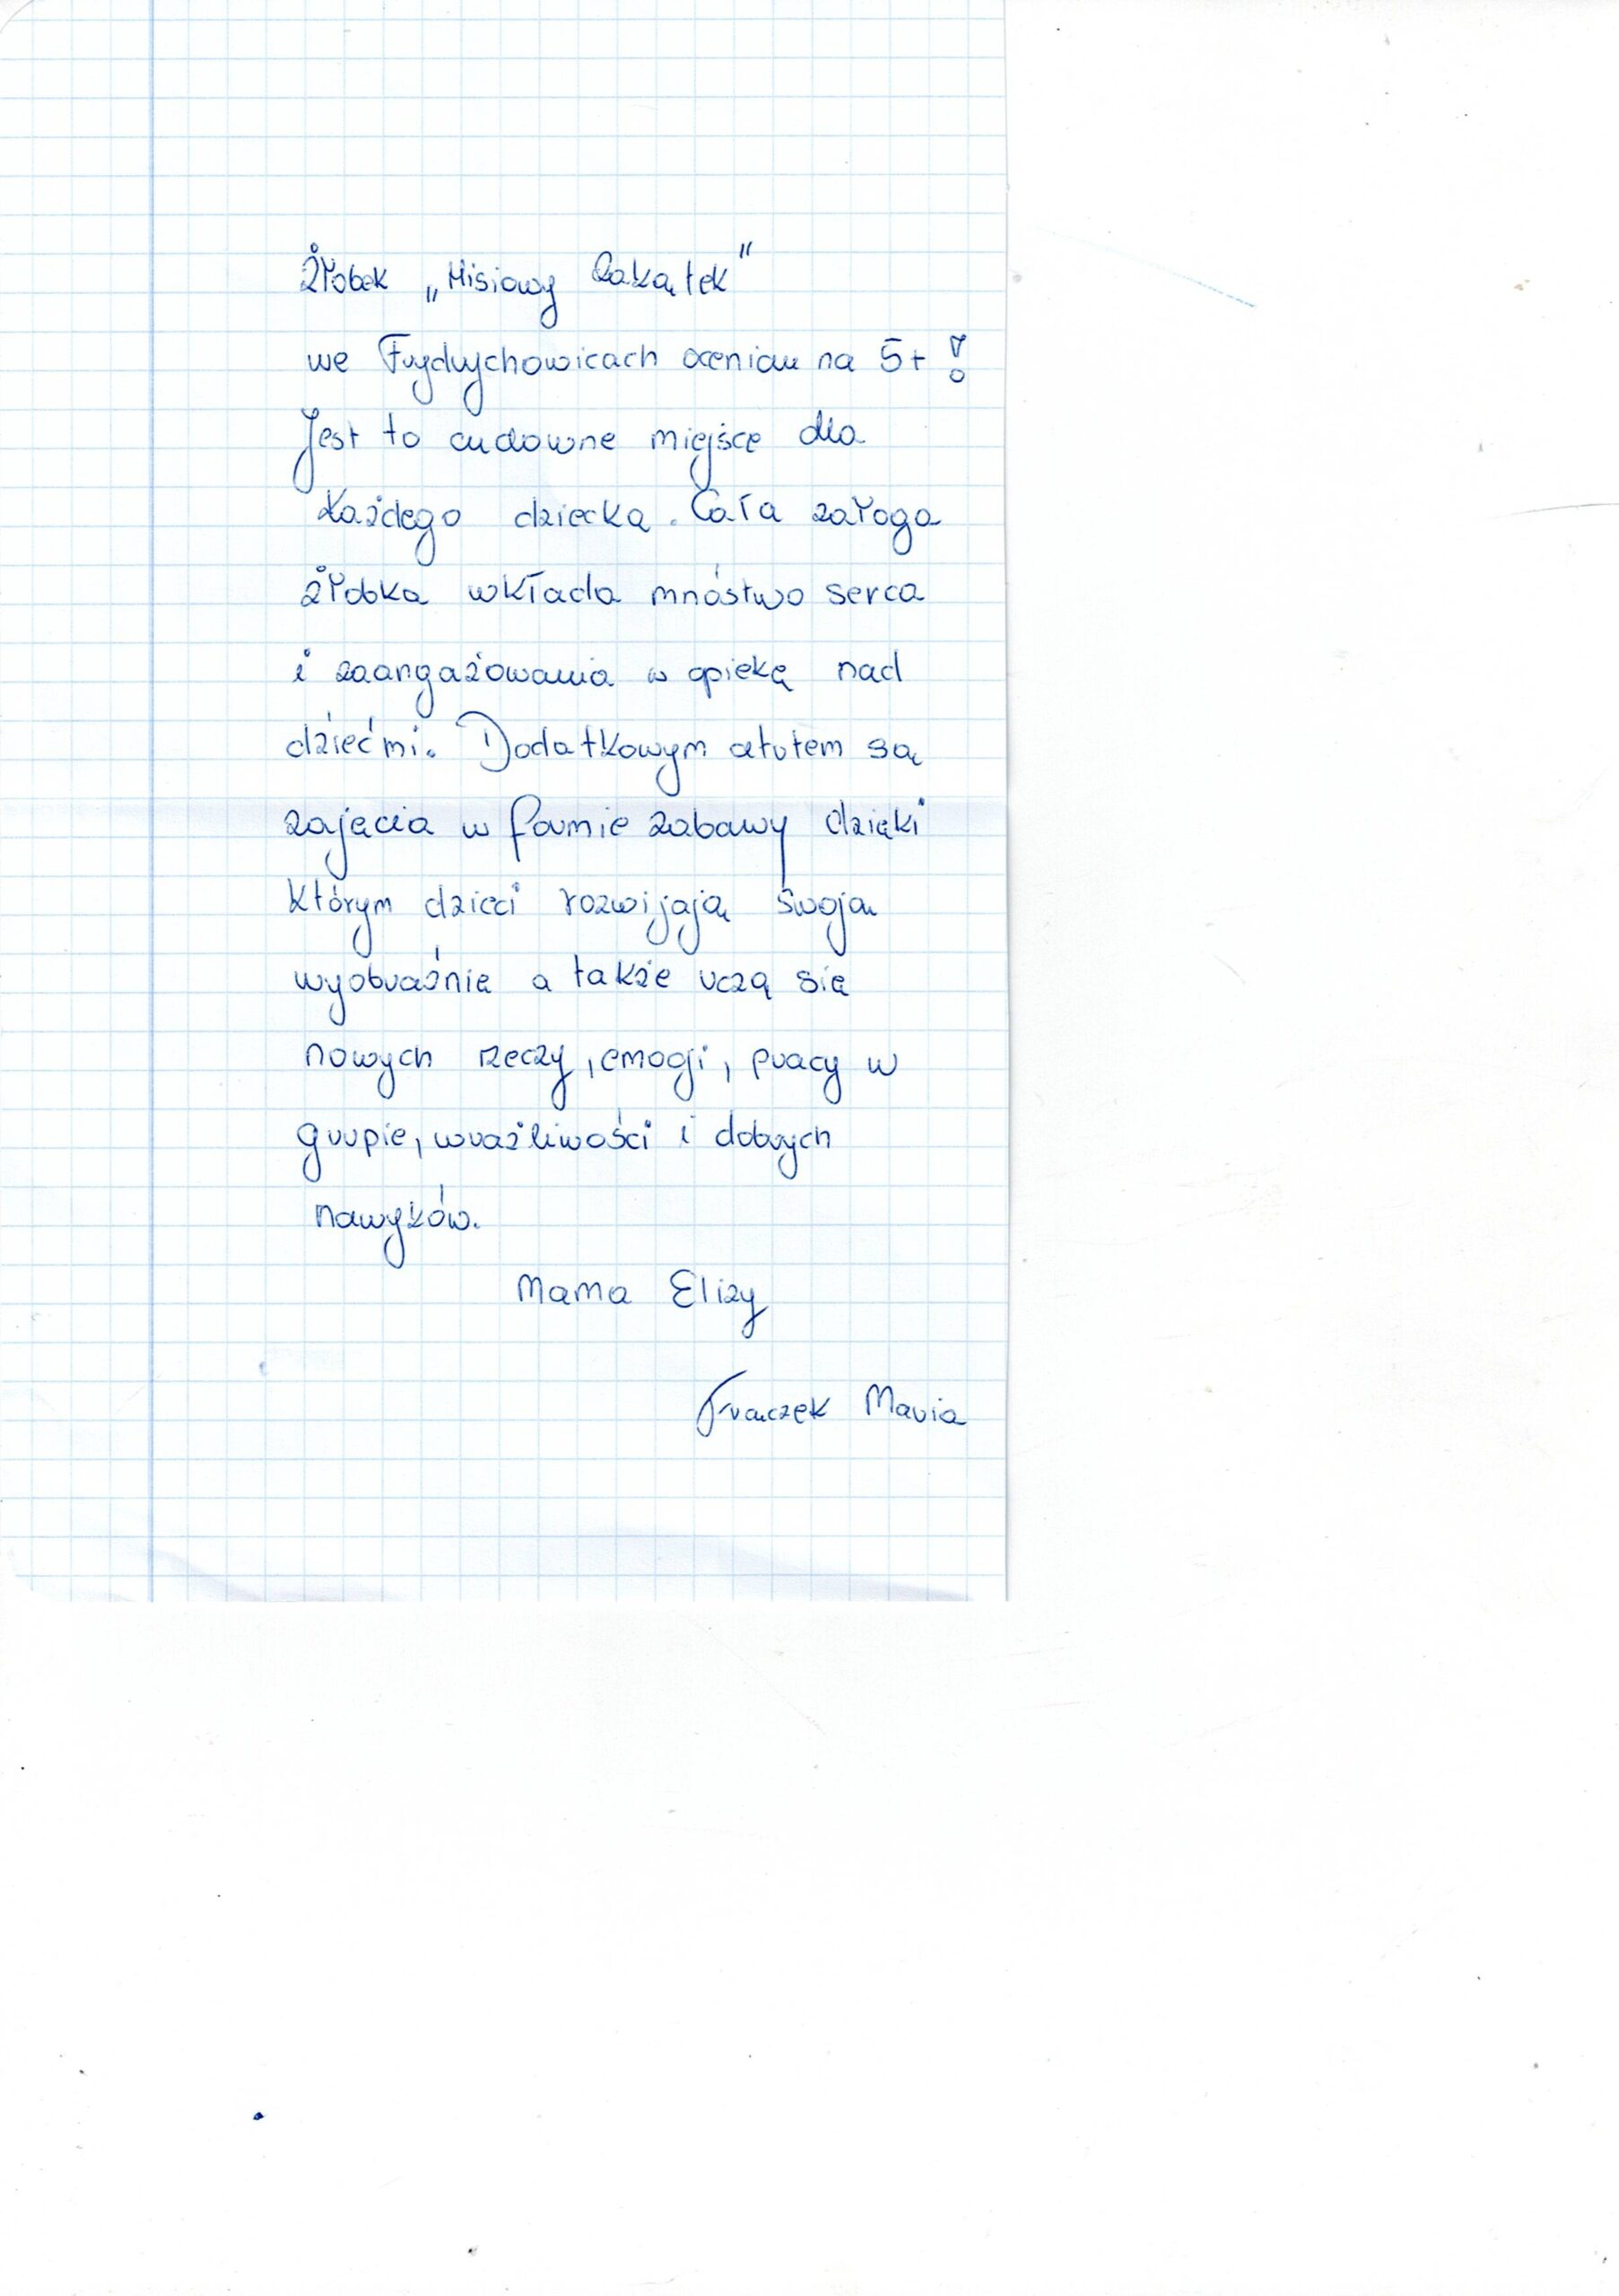 Żłobek „Misiowy Zakątek"
we Frydrychowicach oceniam na 5+!
Jest to cudowne miejsce dla
każdego dziecka. Cała załoga
żłobka wkłada mnóstwo serca
i zaangażowania w opiekę nad
dziećmi. Dodatkowym atutem są
zajęcia w formie zabawy dzięki
którym dzieci rozwijają swoją
wyobraźnię a także uczą się
nowych rzeczy, emocji, pracy w
grupie, wrażliwości i dobrych
nawyków.
Mama Elizy
Franczek Maria